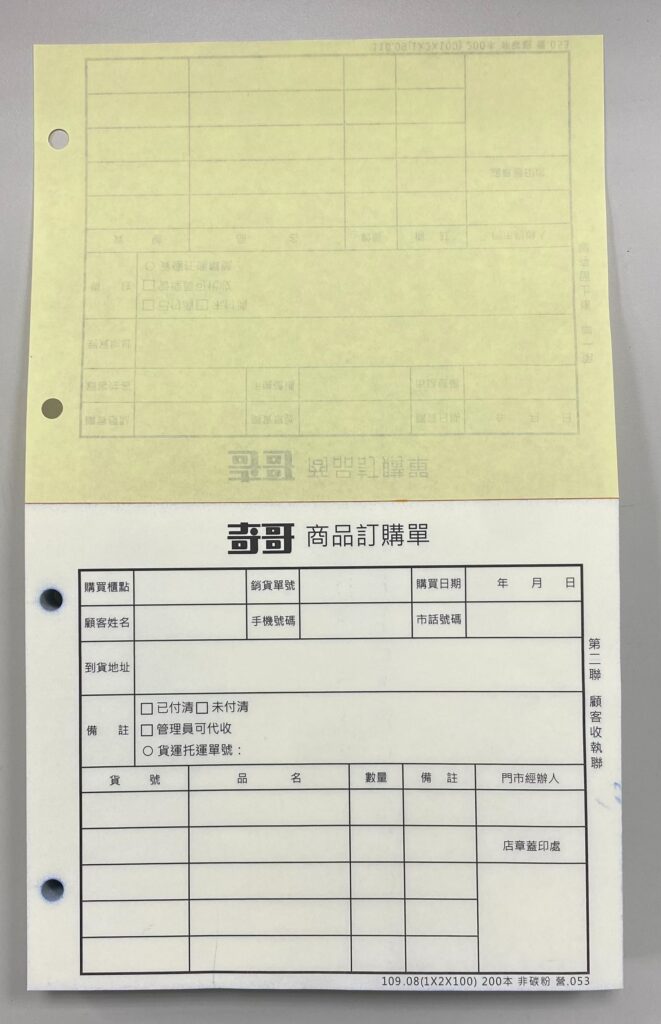 奇哥 商品訂購單
購買櫃點 銷貨單號 購買日期 年 月 日
顧客姓名 手機號碼 市話號碼
到貨地址
備註 □已付清□未付清
□管理員可代收
○貨運托運單號：
貨號 品名 數量 備註 門市經辦人
店章蓋印處
第二聯 顧客收執聯
109.08(1X2X100) 200本 非碳粉 營.053